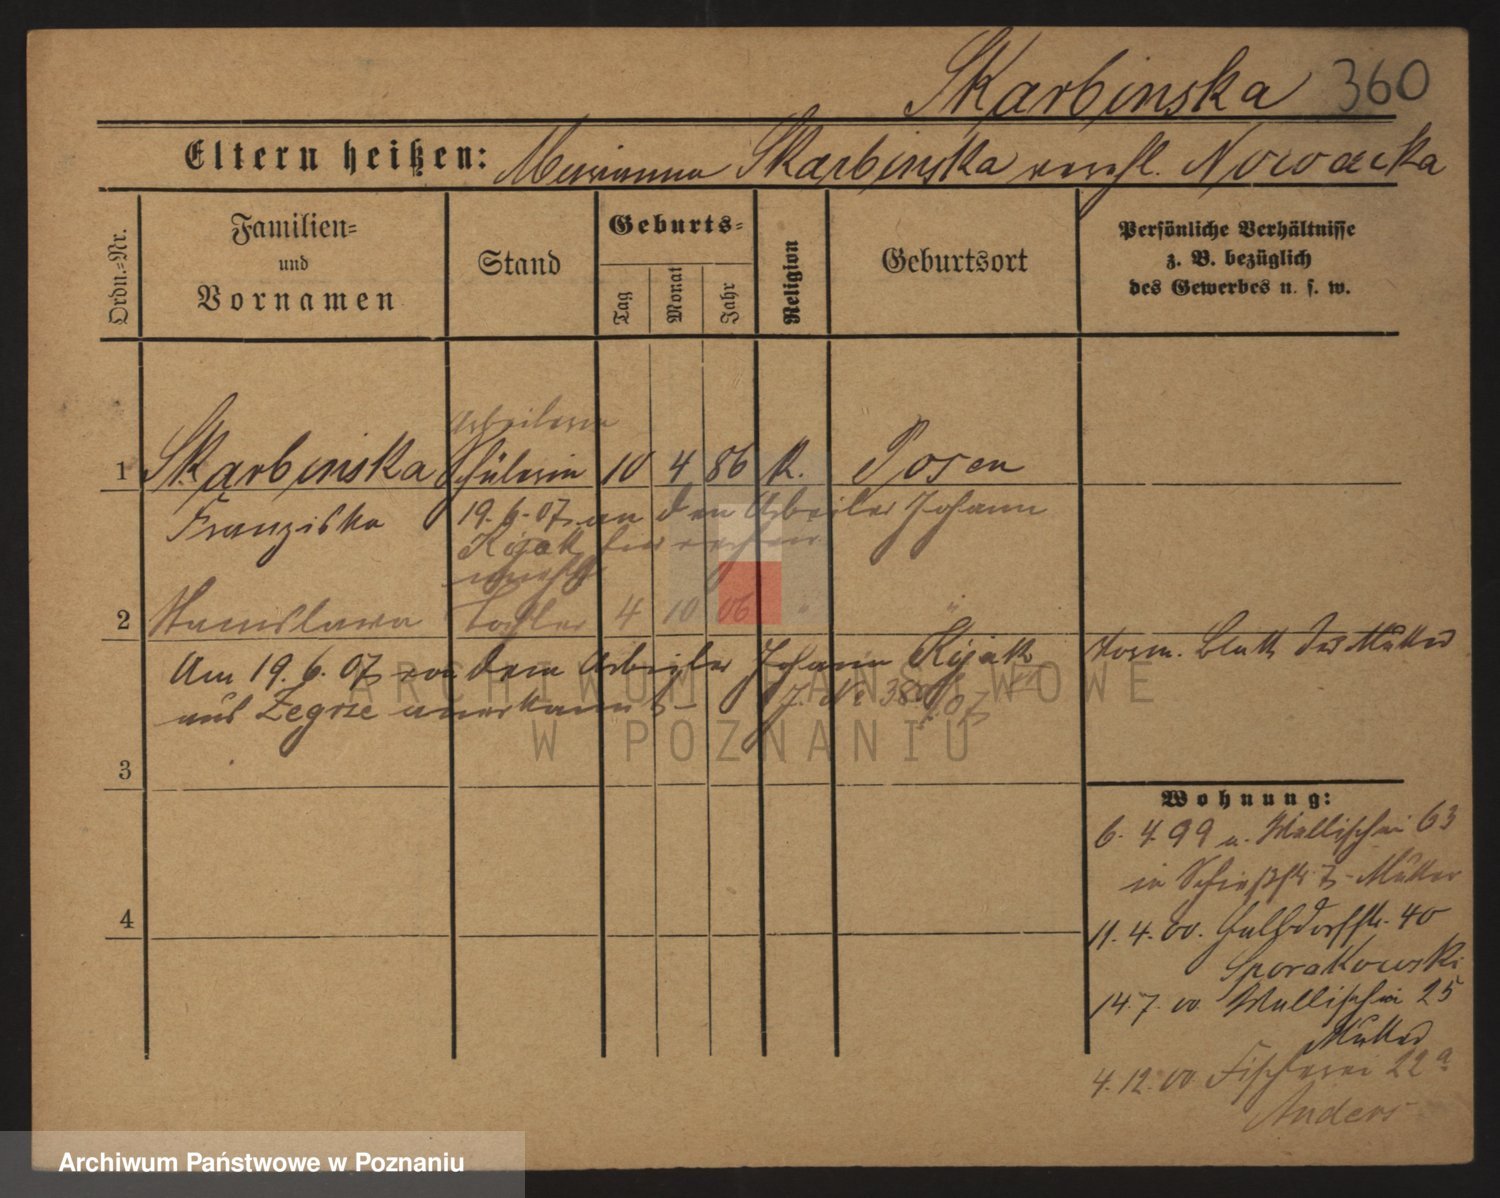 Skarbinska 360
Eltern heißen: Marianna Skarbinska verehl. Nowacka
Ordn.=Nr.
Familien=
und
Vornamen
Stand
Geburts=
Tag
Monat
Jahr
Religion
Geburtsort
Persönliche Verhältnisse
z. B. bezüglich
des Gewerbes u. s. w.
Arbeiterin
1 Skarbinska Schülerin 10 4 86 k. Posen
Franziska 19. 6. 07 an den Arbeiter Johann
Kijak
2 Stanislawa Tochter 4 10 06 " "
Am 19. 6. 07 von dem Arbeiter Johann Kijak
aus Zegrze anerkannt
J. No 380/07
Vorm. Blatt der Mutter
3
4
Wohnung:
6. 4. 99 v. Wallischei 63
in Schießstr 7 - Mutter
11. 4. 00. Halbdorfstr. 40
Sporakowski
14. 7. 00 Wallischei 25
Mutter
4. 12. 00 Fischerei 22a
Anders
ARCHIWUM PAŃSTWOWE
W POZNANIU
Archiwum Państwowe w Poznaniu